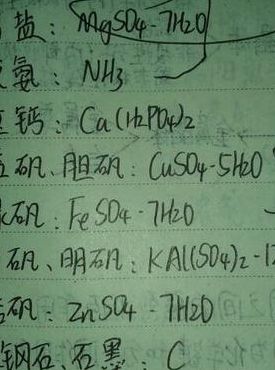 盐：MgSO4·7H2O
氨：NH3
钙：Ca(H2PO4)2
矾、胆矾：CuSO4·5H2O
矾：FeSO4·7H2O
矾、明矾：KAl(SO4)2·1
矾：ZnSO4·7H2O
钢石、石墨：C